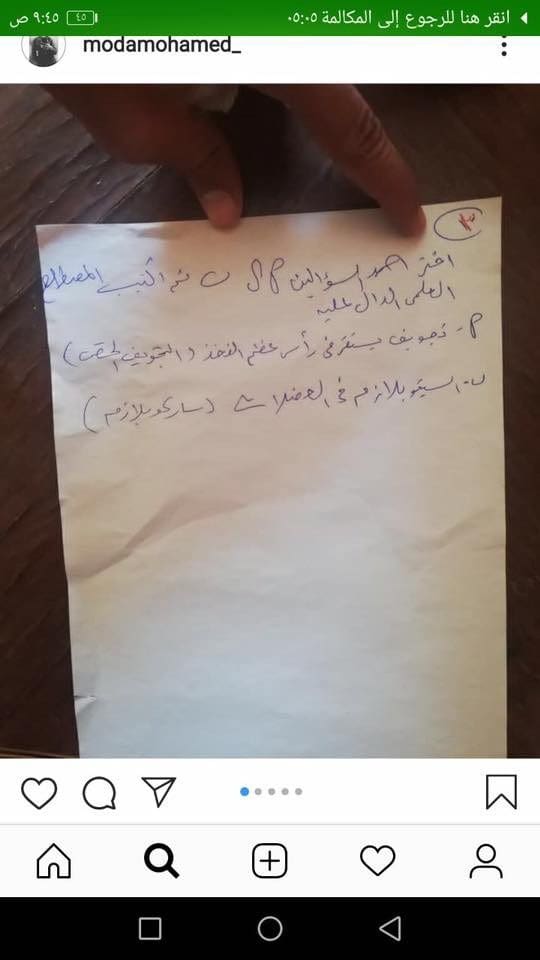 انقر هنا للرجوع إلى المكالمة ٠٥:٠٥
٤٥
٩:٤٥ ص
modamohamed_
٣
اختر احد السؤالين م او ب ثم اكتب المصطلح
العلمى الدال عليه
م- تجويف يستقر فى رأس عظم الفخذ (التجويف الحقى)
ب- السيتوبلازم فى العضلات (ساركوبلازم)